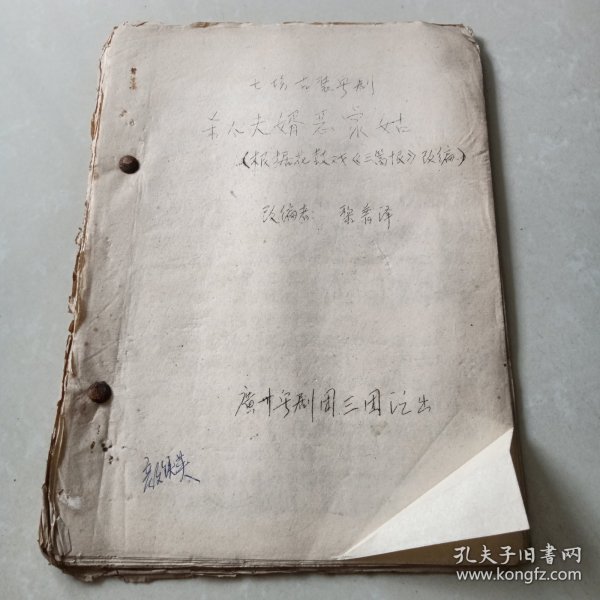 七场古装粤剧
杀人夫婿恶家姑
(根据花鼓戏《三篙恨》改编)
改编者: 黎秀泽
廣州粤剧团三团演出
孔夫子旧书网
www.kongfz.com